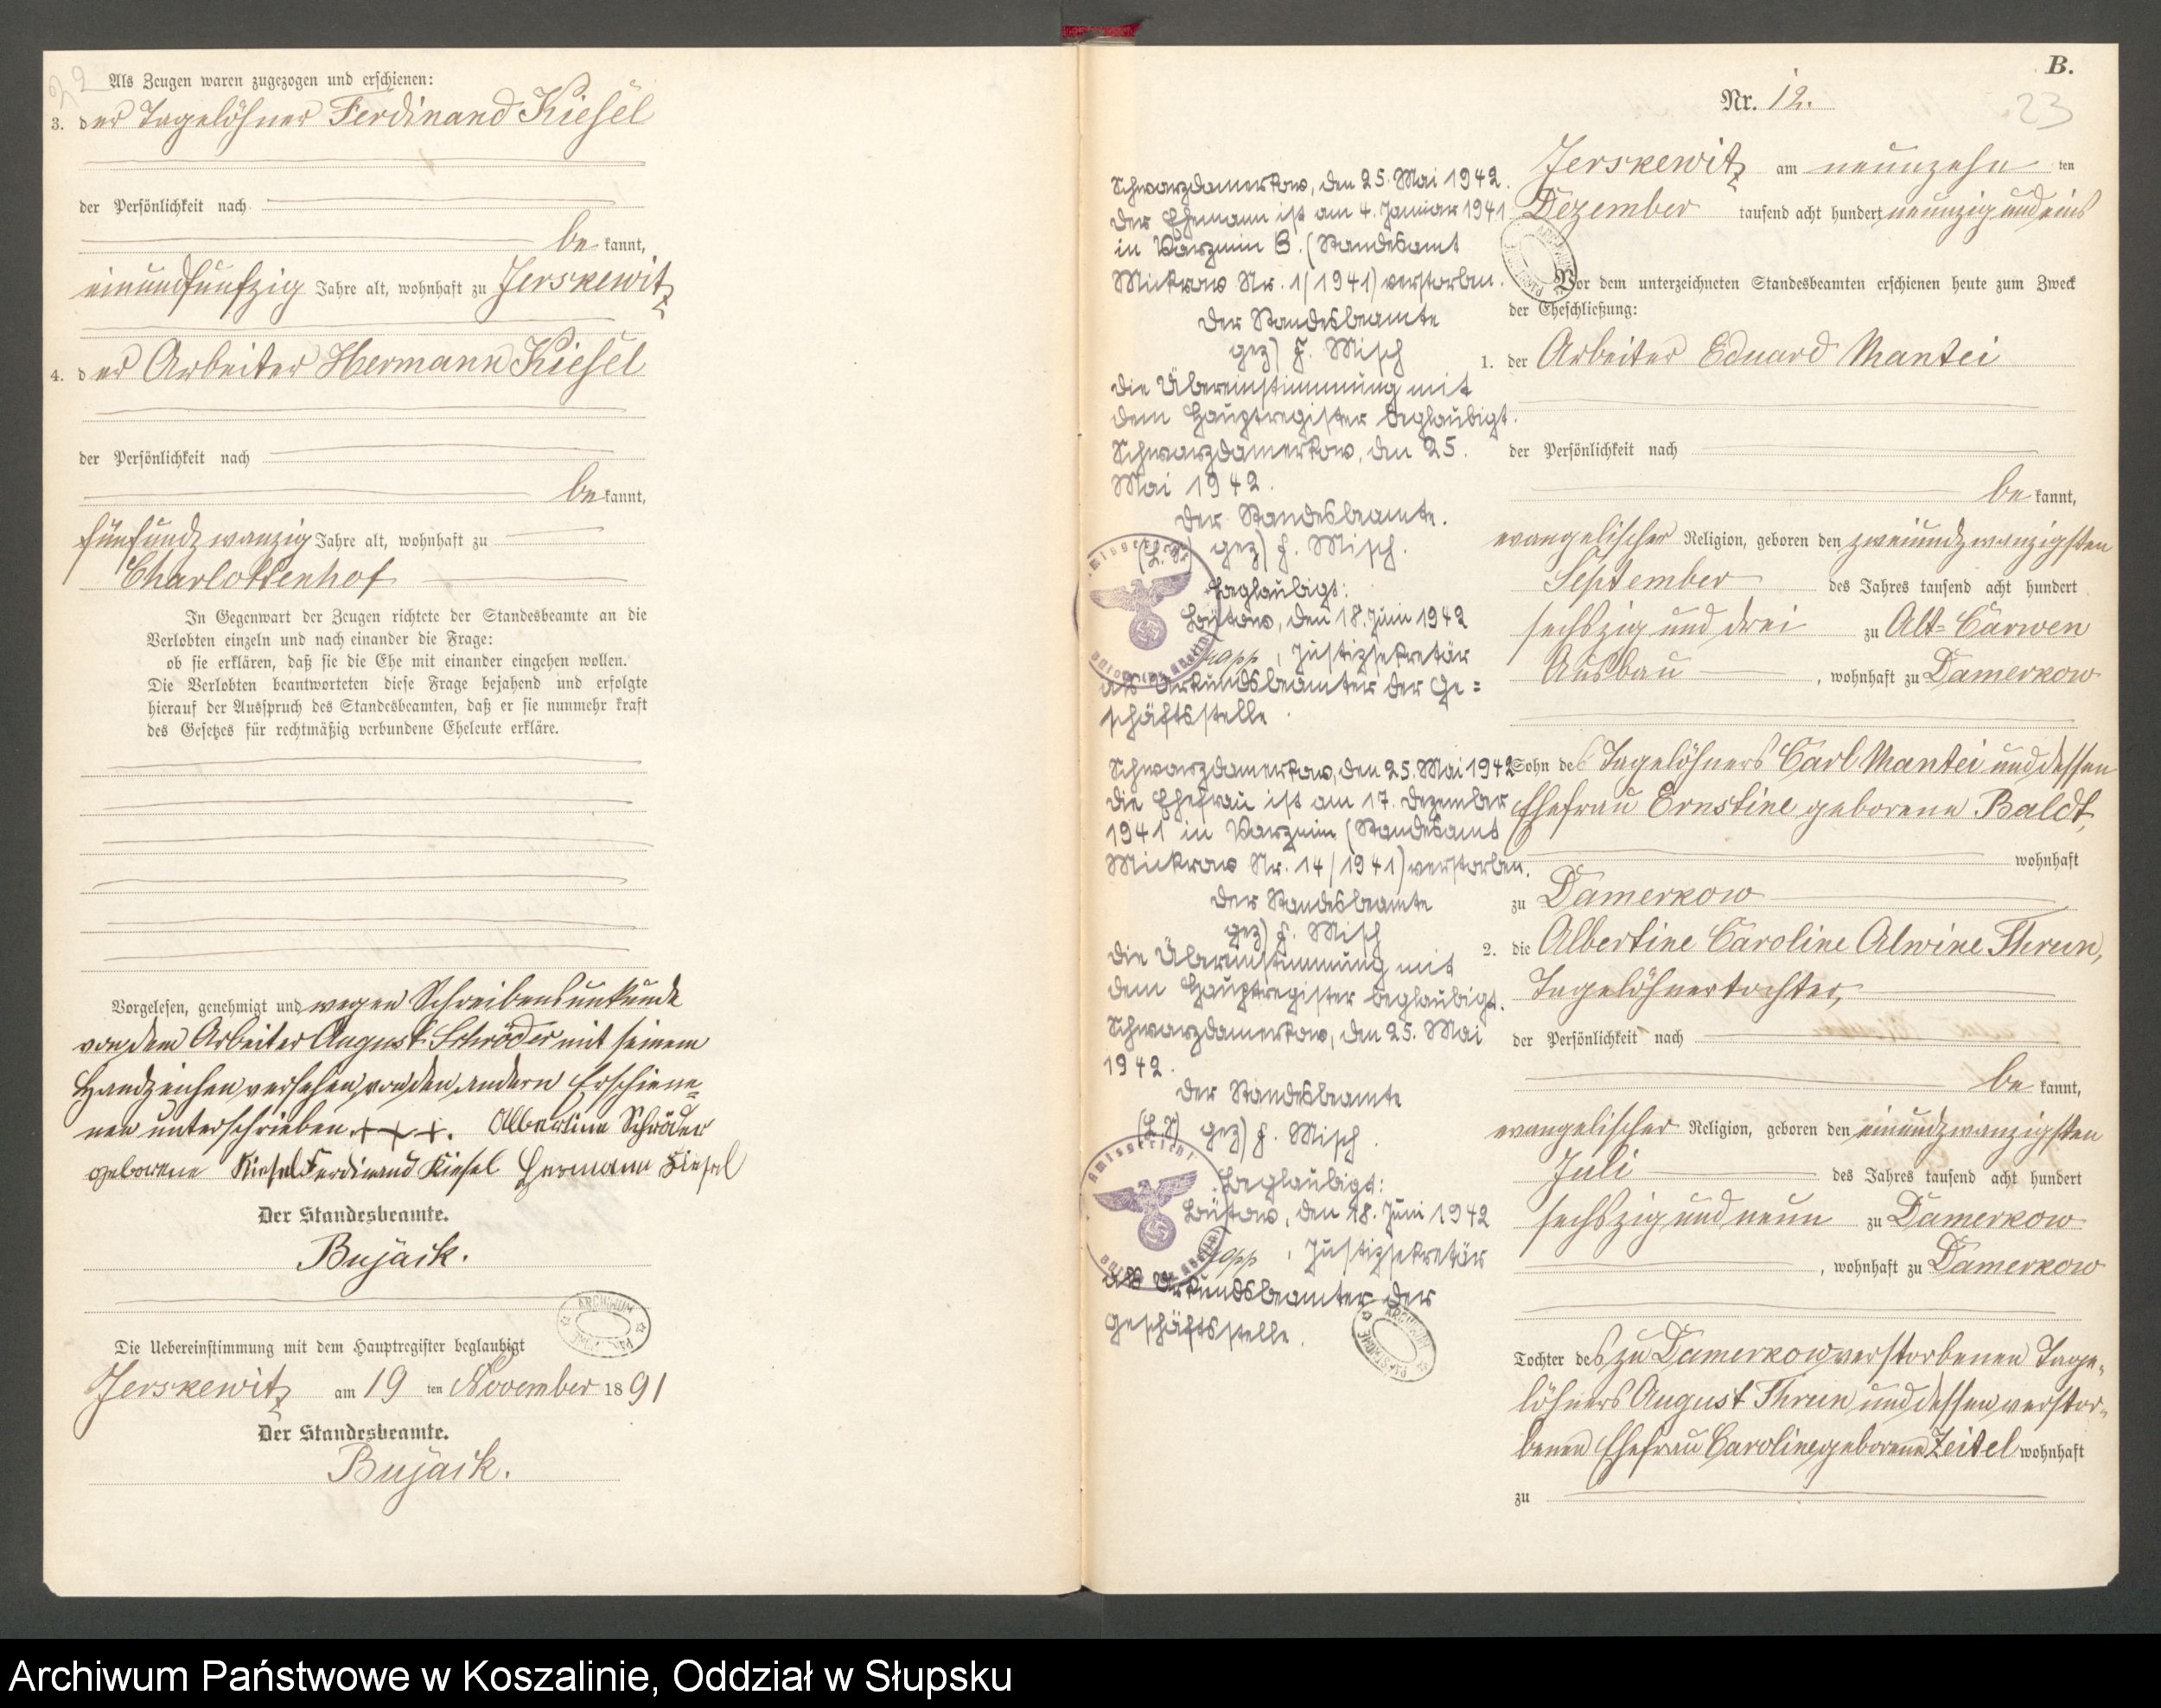 22
Als Zeugen waren zugezogen und erschienen:
3. der Tagelöhner Ferdinand Kiesel
der Persönlichkeit nach
bekannt,
einundfünfzig Jahre alt, wohnhaft zu Jerskewitz
4. der Arbeiter Hermann Kiesel
der Persönlichkeit nach
bekannt,
fünfundzwanzig Jahre alt, wohnhaft zu
Charlottenhof
In Gegenwart der Zeugen richtete der Standesbeamte an die
Verlobten einzeln und nach einander die Frage:
ob sie erklären, daß sie die Ehe mit einander eingehen wollen.
Die Verlobten beantworteten diese Frage bejahend und erfolgte
hierauf der Ausspruch des Standesbeamten, daß er sie nunmehr kraft
des Gesetzes für rechtmäßig verbundene Eheleute erkläre.
Vorgelesen, genehmigt und wegen Schreibensunkunde
von dem Arbeiter August Schröder mit seinem
Handzeichen versehen, von den andern Erschiene-
nen unterschrieben. +++. Albertine Schröder
geborene Kiesel Ferdinand Kiesel Hermann Kiesel
Der Standesbeamte.
Bujack.
Die Uebereinstimmung mit dem Hauptregister beglaubigt
Jerskewitz am 19 ten November 1891
Der Standesbeamte.
Bujack.
ARCHIWUM
B.
Nr. 12.
23
Jerskewitz am neunzehn ten
Dezember tausend acht hundert neunzig und eins
Vor dem unterzeichneten Standesbeamten erschienen heute zum Zweck
der Eheschließung:
1. der Arbeiter Eduard Mantei
der Persönlichkeit nach
bekannt,
evangelischer Religion, geboren den zweiundzwanzigsten
September des Jahres tausend acht hundert
sechszig und drei zu Alt-Carwen
Ausbau, wohnhaft zu Damerkow
Sohn des Tagelöhners Carl Mantei und dessen
Ehefrau Ernstine geborene Baldt,
wohnhaft
zu Damerkow
2. die Albertine Caroline Alwine Thrun,
Tagelöhnertochter,
der Persönlichkeit nach
bekannt,
evangelischer Religion, geboren den einundzwanzigsten
Juli des Jahres tausend acht hundert
sechszig und neun zu Damerkow
, wohnhaft zu Damerkow
Tochter des zu Damerkow verstorbenen Tage-
löhners August Thrun und dessen verstor-
benen Ehefrau Caroline geborene Zeitel wohnhaft
zu
Schwarzdamerkow, den 25. Mai 1942.
Der Ehemann ist am 4. Januar 1941
in Warzmin B. (Standesamt
Mickrow Nr. 1/1941) verstorben.
Der Standesbeamte
gez) F. Misch
Die Übereinstimmung mit
dem Hauptregister beglaubigt.
Schwarzdamerkow, den 25.
Mai 1942.
Der Standesbeamte.
(L.S.) gez) F. Misch.
Beglaubigt:
Bütow, den 18. Juni 1942
, Justizsekretär
als Urkundsbeamter der Ge=
schäftsstelle.
Schwarzdamerkow, den 25. Mai 1942
Die Ehefrau ist am 17. Dezember
1941 in Warzmin (Standesamt
Mickrow Nr. 14/1941) verstorben.
Der Standesbeamte
gez) F. Misch
Die Übereinstimmung mit
dem Hauptregister beglaubigt.
Schwarzdamerkow, den 25. Mai
1942.
Der Standesbeamte
(L.S) gez) F. Misch.
Amtsgericht
Beglaubigt:
Bütow, den 18. Juni 1942
, Justizsekretär
als Urkundsbeamter der
Geschäftsstelle.
ARCHIWUM
Archiwum Państwowe w Koszalinie, Oddział w Słupsku